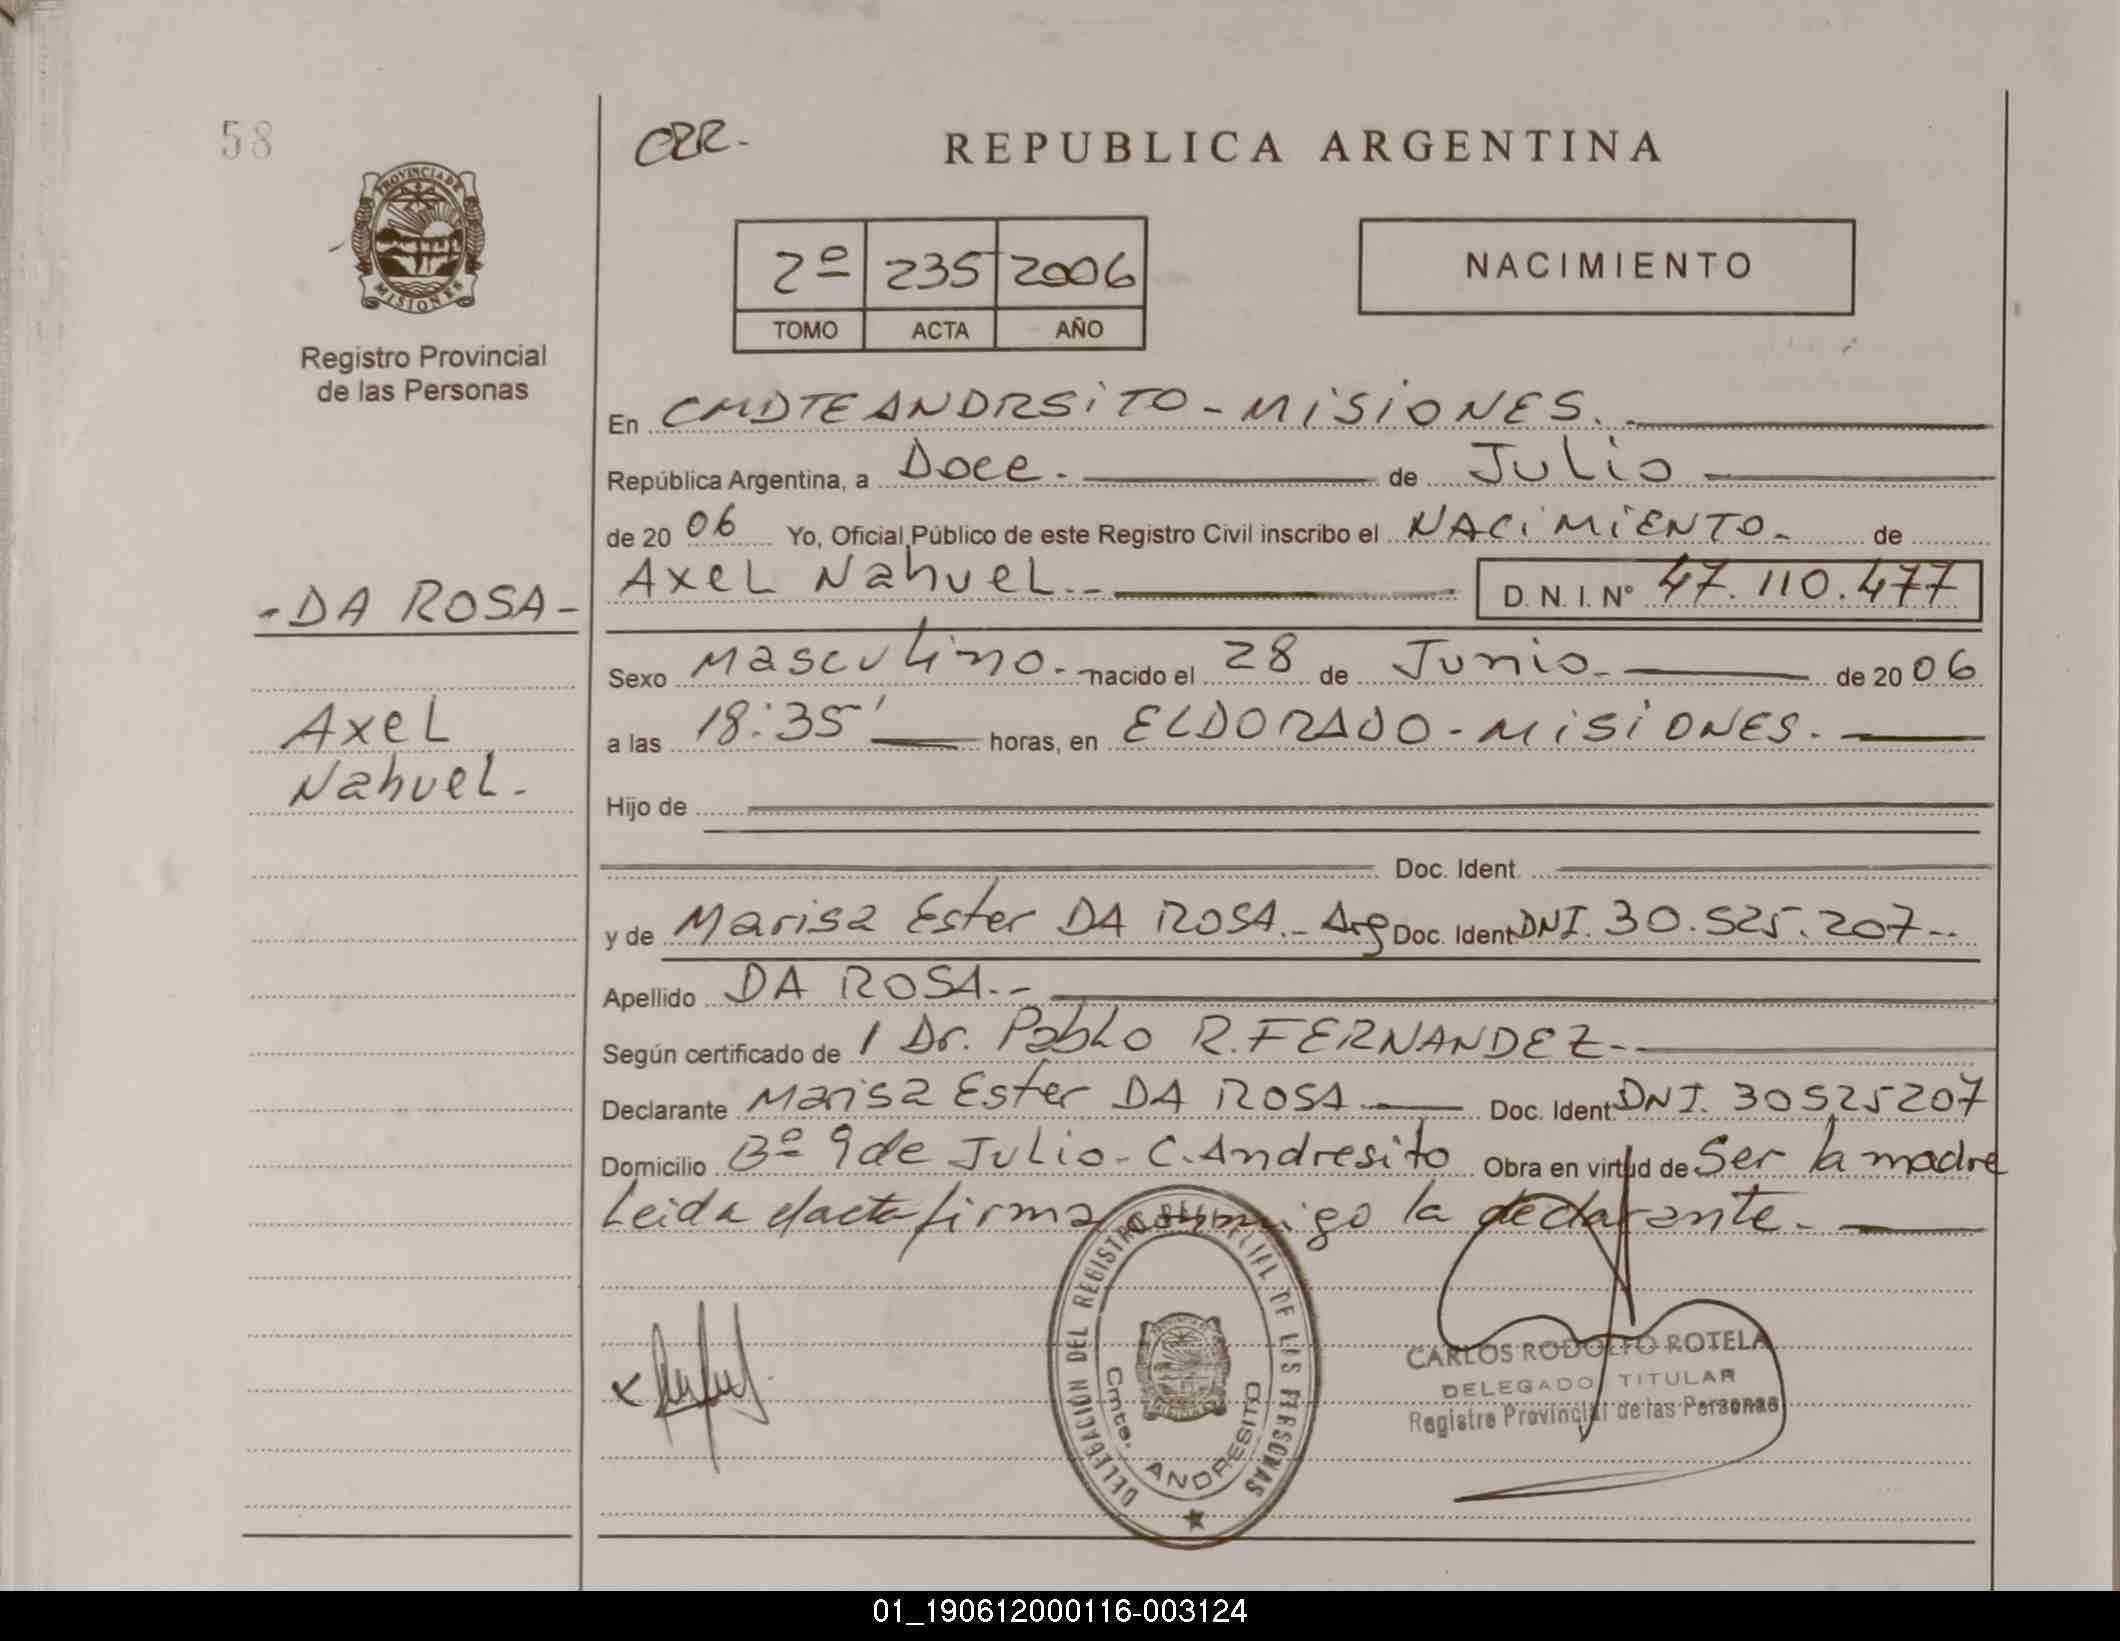 58
CRR.
REPUBLICA ARGENTINA
PROVINCIA DE
MISIONES
Registro Provincial
de las Personas
2º 235 2006
TOMO ACTA AÑO
NACIMIENTO
En CMDTE ANDRSITO - MISIONES.
República Argentina, a Doce. de Julio
de 20 06 Yo, Oficial Público de este Registro Civil inscribo el NACIMIENTO de
- DA ROSA -
Axel Nahuel. D. N. I. Nº 47.110.477
Sexo Masculino. nacido el 28 de Junio de 20 06
Axel
Nahuel.
a las 18:35' horas, en ELDORADO - MISIONES.
Hijo de
Doc. Ident.
y de Marisa Ester DA ROSA.- Arg Doc. Ident DNI. 30.525.207--
Apellido DA ROSA.-
Según certificado de 1 Dr. Pablo R. FERNANDEZ-
Declarante Marisa Ester DA ROSA Doc. Ident. DNI. 30525207
Domicilio Bº 9 de Julio - C. Andresito Obra en virtud de Ser la madre
Leida elacta firma conmigo la declarante.
DELEGACION DEL REGISTRO CIVIL DE LAS PERSONAS
Cmte. ANDRESITO
CARLOS RODOLFO ROTELA
DELEGADO TITULAR
Registro Provincial de las Personas
01_190612000116-003124